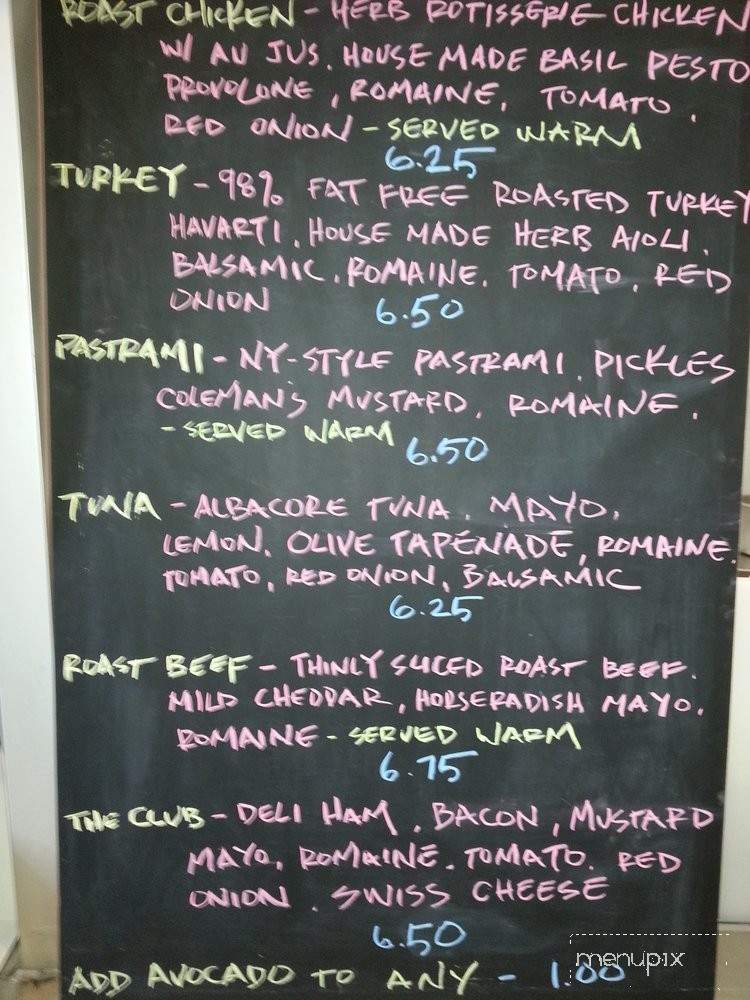 ROAST CHICKEN - HERB ROTISSERIE CHICKEN
W/ AU JUS. HOUSE MADE BASIL PESTO
PROVOLONE, ROMAINE, TOMATO,
RED ONION - SERVED WARM
6.25
TURKEY - 98% FAT FREE ROASTED TURKEY
HAVARTI, HOUSE MADE HERB AIOLI,
BALSAMIC, ROMAINE, TOMATO, RED
ONION 6.50
PASTRAMI - NY-STYLE PASTRAMI, PICKLES
COLEMAN'S MUSTARD, ROMAINE,
- SERVED WARM 6.50
TUNA - ALBACORE TUNA, MAYO,
LEMON, OLIVE TAPENADE, ROMAINE,
TOMATO, RED ONION, BALSAMIC
6.25
ROAST BEEF - THINLY SLICED ROAST BEEF,
MILD CHEDDAR, HORSERADISH MAYO,
ROMAINE - SERVED WARM
6.75
THE CLUB - DELI HAM, BACON, MUSTARD
MAYO, ROMAINE, TOMATO, RED
ONION, SWISS CHEESE
6.50
ADD AVOCADO TO ANY - 1.00
menupix